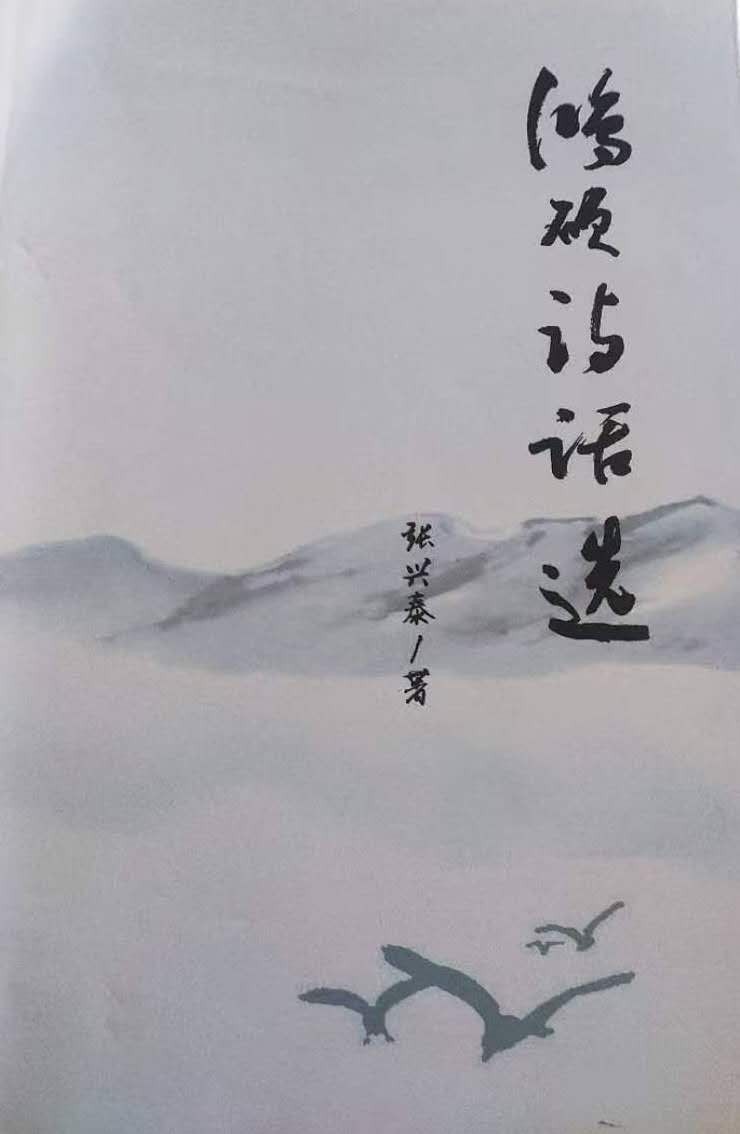 鸿硕诗话选
张兴泰/著